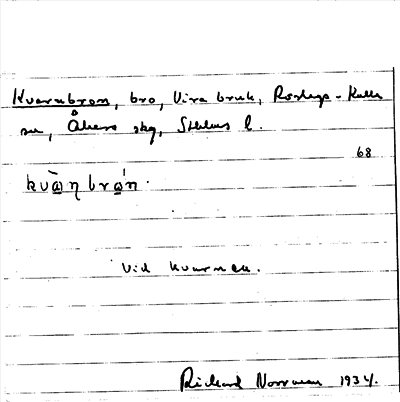 Kvarnbron, bro, Vira bruk, Roslags-Kulla
sn, Åkers skg, Sthlms l.
68
kvàɳbrón.
Vid kvarnen.
Rickard Norrman 1934.